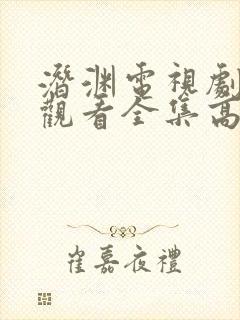 潛渊電視劇
觀看全集高
崔嘉夜禮